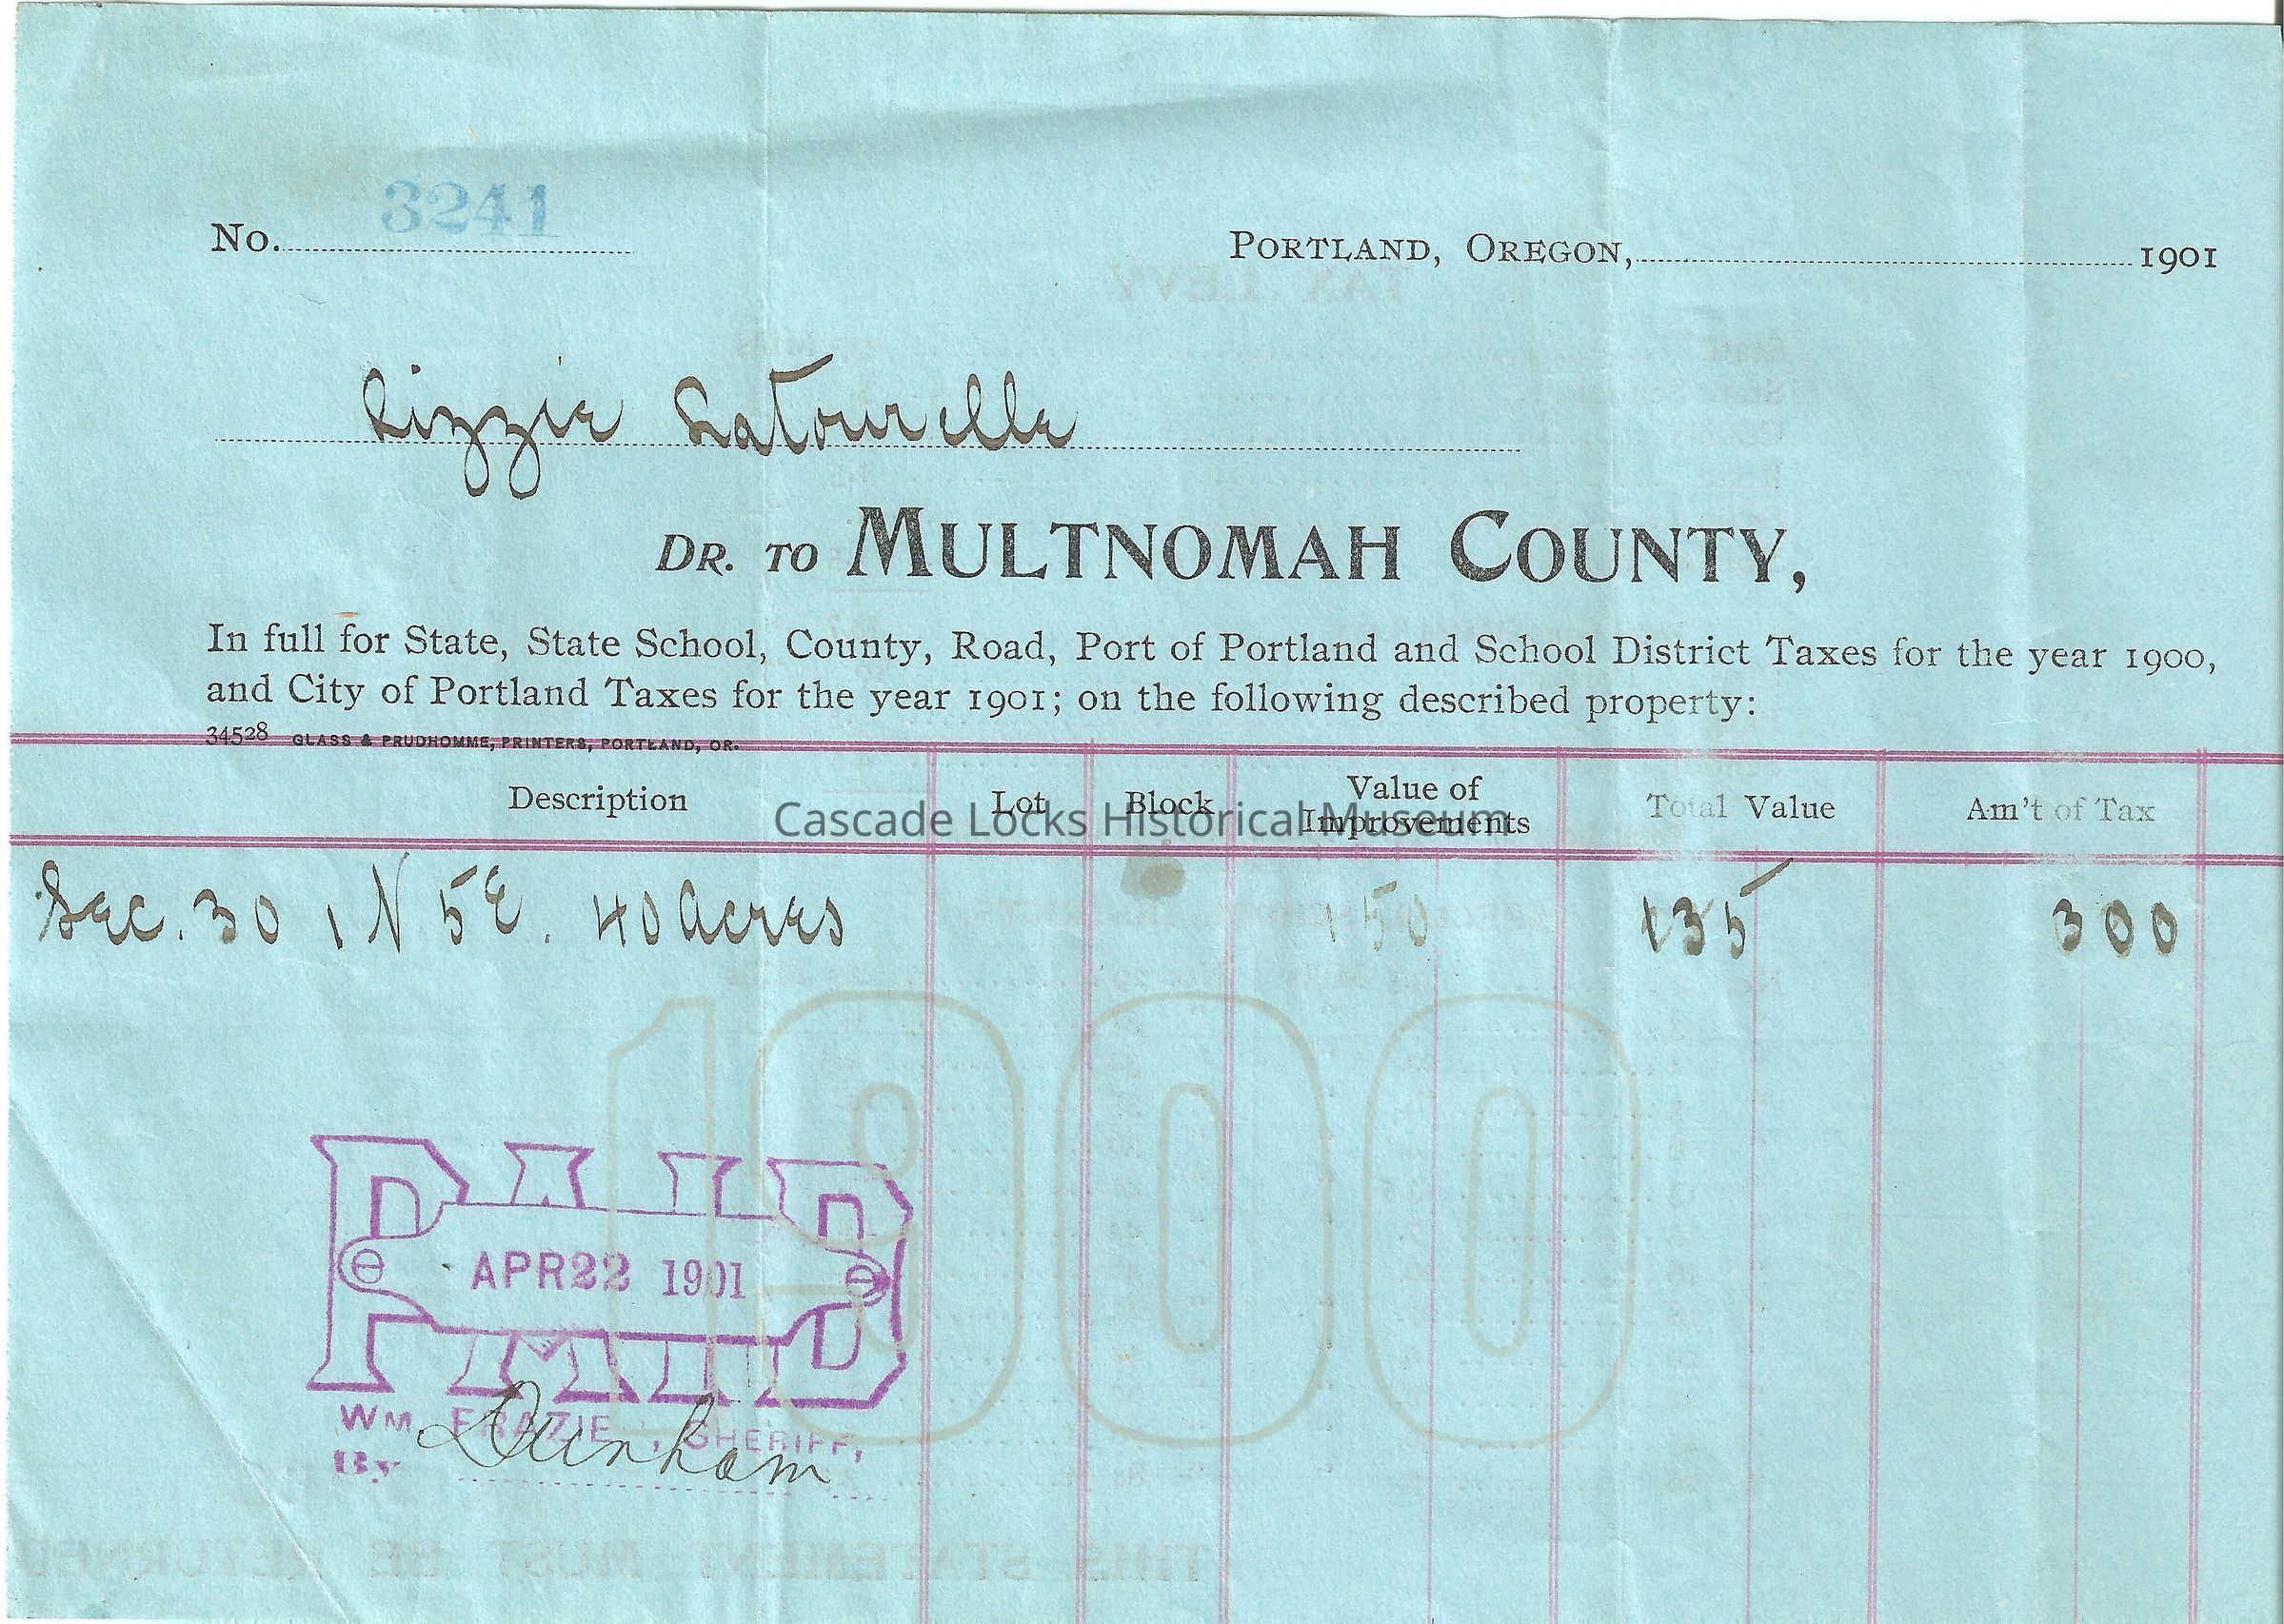 3241
No. PORTLAND, OREGON, 1901
TAX LEVY
Lizzie LaTourelle
DR. TO MULTNOMAH COUNTY,
In full for State, State School, County, Road, Port of Portland and School District Taxes for the year 1900,
and City of Portland Taxes for the year 1901; on the following described property:
34528 GLASS & PRUDHOMME, PRINTERS, PORTLAND, OR.
Description Lot Block Value of Improvements Total Value Am't of Tax
Cascade Locks Historical Museum
Sec. 30 1 N 5 E. 40 acres 150 135 300
1900
PAID
APR 22 1901
WM FRAZIE , SHERIFF,
By Dunham
THIS STATEMENT MUST BE RETURNED